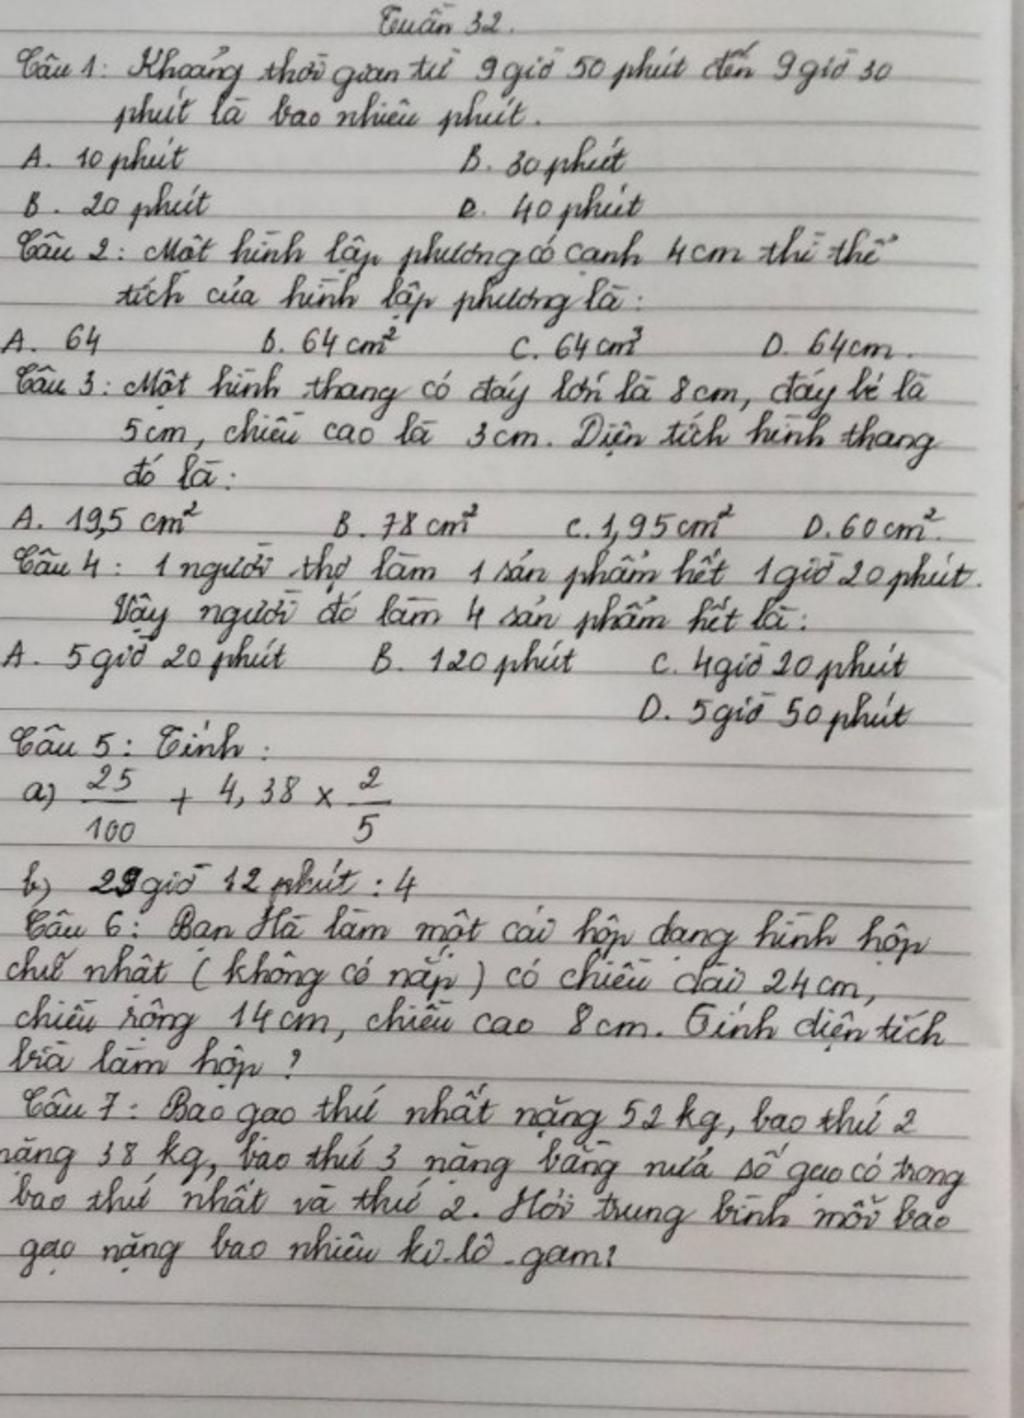 Tuần 32.
Câu 1: Khoảng thời gian từ 9 giờ 50 phút đến 9 giờ 30
phút là bao nhiêu phút.
A. 10 phút B. 30 phút
B. 20 phút C. 40 phút
Câu 2: Một hình lập phương có cạnh 4 cm thì thể
tích của hình lập phương là:
A. 64 B. 64 cm² C. 64 cm³ D. 64cm.
Câu 3: Một hình thang có đáy lớn là 8 cm, đáy bé là
5 cm, chiều cao là 3 cm. Diện tích hình thang
đó là:
A. 19,5 cm² B. 78 cm² C. 1,95 cm² D. 60 cm².
Câu 4: 1 người thợ làm 1 sản phẩm hết 1 giờ 20 phút.
Vậy người đó làm 4 sản phẩm hết là:
A. 5 giờ 20 phút B. 120 phút C. 4 giờ 20 phút
D. 5 giờ 50 phút
Câu 5: Tính:
a) 25/100 + 4,38 × 2/5
b) 29 giờ 12 phút : 4
Câu 6: Bạn Hà làm một cái hộp dạng hình hộp
chữ nhật (không có nắp) có chiều dài 24 cm,
chiều rộng 14 cm, chiều cao 8 cm. Tính diện tích
bìa làm hộp?
Câu 7: Bao gạo thứ nhất nặng 52 kg, bao thứ 2
nặng 38 kg, bao thứ 3 nặng bằng nửa số gạo có trong
bao thứ nhất và thứ 2. Hỏi trung bình mỗi bao
gạo nặng bao nhiêu ki-lô-gam?